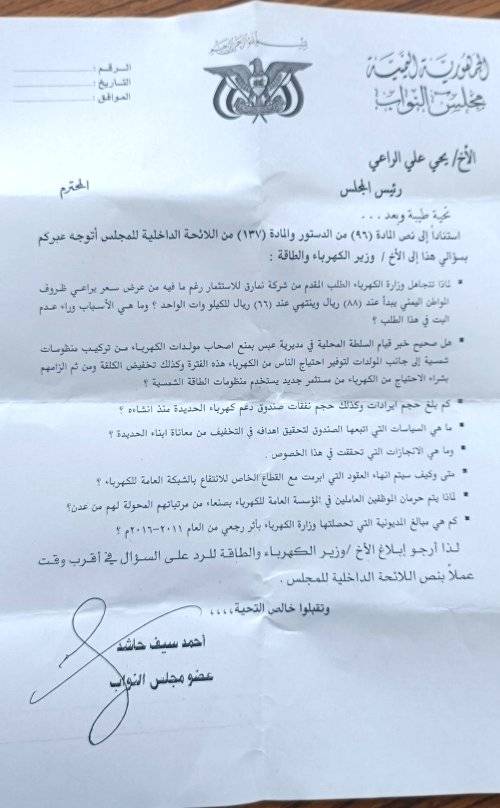 الجمهورية اليمنية
مجلس النواب
الرقم :
التاريخ :
الموافق :
الأخ/ يحي علي الراعي
رئيس المجلس المحترم
تحية طيبة وبعد ...
استناداً إلى نص المادة (٩٦) من الدستور والمادة (١٣٧) من اللائحة الداخلية للمجلس أتوجه عبركم
بسؤالي هذا إلى الأخ / وزير الكهرباء والطاقة :
لماذا تتجاهل وزارة الكهرباء الطلب المقدم من شركة نمارق للاستثمار رغم ما فيه من عرض سعر يراعي ظروف
المواطن اليمني يبدأ عند (٨٨) ريال وينتهي عند (٦٦) ريال للكيلو وات الواحد ؟ وما هي الأسباب وراء عدم
البت في هذا الطلب ؟
هل صحيح خبر قيام السلطة المحلية في مديرية عبس بمنع اصحاب مولدات الكهرباء من تركيب منظومات
شمسية إلى جانب المولدات لتوفير احتياج الناس من الكهرباء هذه الفترة وكذلك تخفيض الكلفة ومن ثم الزامهم
بشراء الاحتياج من الكهرباء من مستثمر جديد يستخدم منظومات الطاقة الشمسية ؟
كم بلغ حجم ايرادات وكذلك حجم نفقات صندوق دعم كهرباء الحديدة منذ انشاءه ؟
ما هي السياسات التي اتبعها الصندوق لتحقيق اهدافه في التخفيف من معاناة ابناء الحديدة ؟
وما هي الانجازات التي تحققت في هذا الخصوص .
متى وكيف سيتم انهاء العقود التي ابرمت مع القطاع الخاص للانتفاع بالشبكة العامة للكهرباء ؟
لماذا يتم حرمان الموظفين العاملين في المؤسسة العامة للكهرباء بصنعاء من مرتباتهم المحولة لهم من عدن؟
كم هي مبالغ المديونية التي تحملتها وزارة الكهرباء بأثر رجعي من العام ٢٠١١-٢٠١٦م ؟
لذا أرجو إبلاغ الأخ /وزير الكهرباء والطاقة للرد على السؤال في أقرب وقت
عملاً بنص اللائحة الداخلية للمجلس .
وتقبلوا خالص التحية ،،،،
أحمد سيف حاشد
عضو مجلس النواب